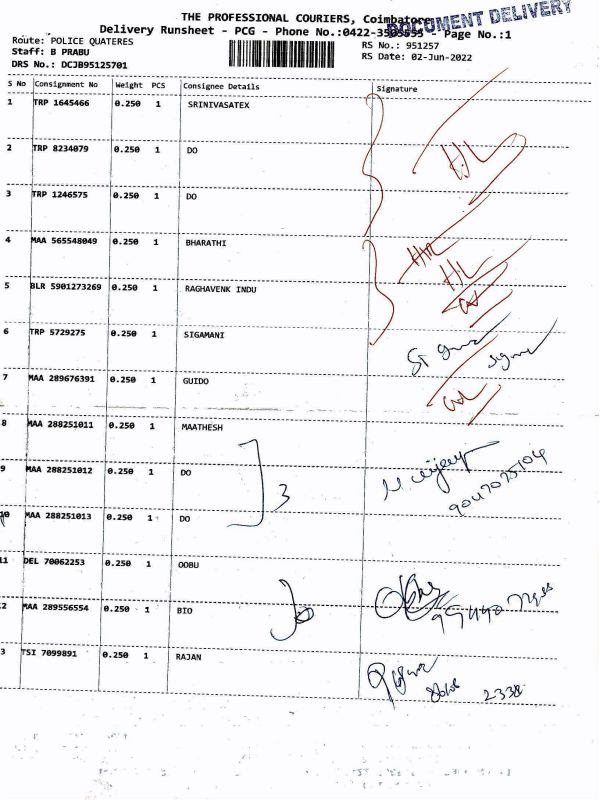 THE PROFESSIONAL COURIERS, Coimbatore
DOCUMENT DELIVERY
Delivery Runsheet - PCG - Phone No.:0422-3505555 - Page No.:1
Route: POLICE QUATERES RS No.: 951257
Staff: B PRABU RS Date: 02-Jun-2022
DRS No.: DCJB95125701
S No Consignment No Weight PCS Consignee Details Signature
1 TRP 1645466 0.250 1 SRINIVASATEX
2 TRP 8234079 0.250 1 DO
3 TRP 1246575 0.250 1 DO
4 MAA 565548049 0.250 1 BHARATHI
5 BLR 5901273269 0.250 1 RAGHAVENK INDU
6 TRP 5729275 0.250 1 SIGAMANI
7 MAA 289676391 0.250 1 GUIDO
8 MAA 288251011 0.250 1 MAATHESH
9 MAA 288251012 0.250 1 DO
3
10 MAA 288251013 0.250 1 DO
11 DEL 70062253 0.250 1 OOBU
2 MAA 289556554 0.250 1 BIO
3 TSI 7099891 0.250 1 RAJAN
2338